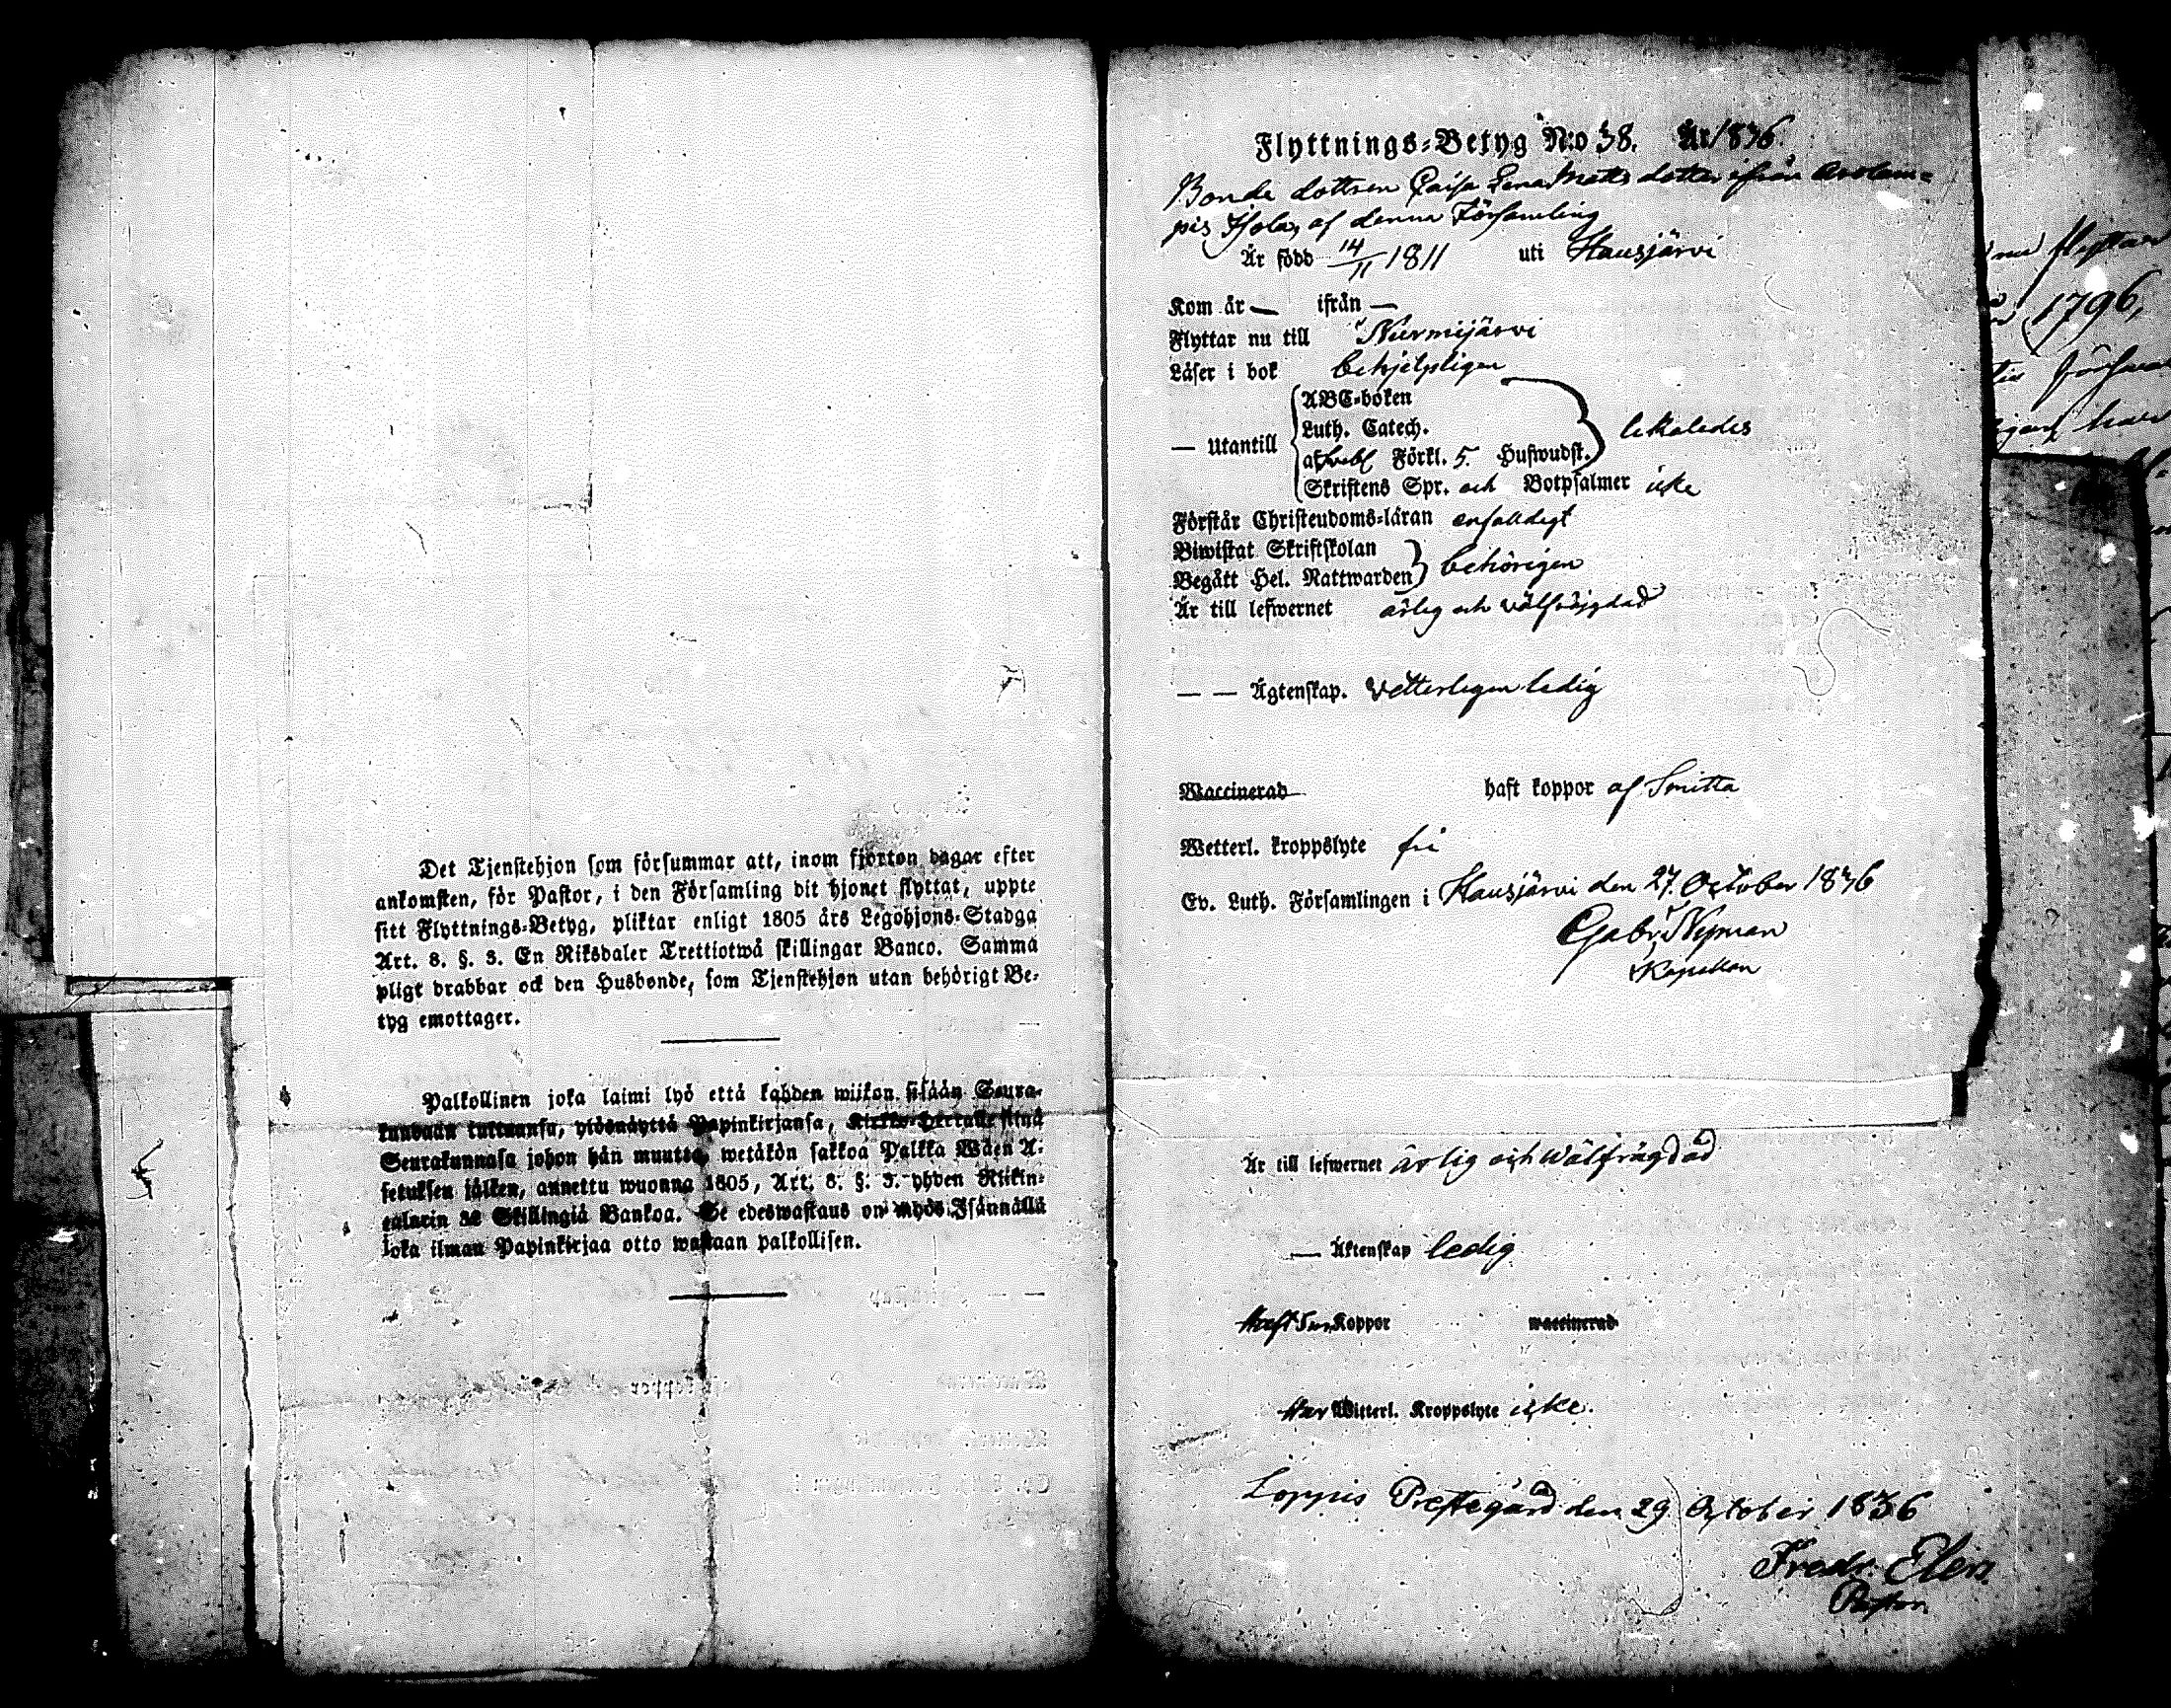 Det Tjenstehjon som försummar att, inom fjorton dagar efter
ankomsten, för Pastor, i den Församling dit hjonet flyttat, uppte
sitt Flyttnings-Betyg, pliktar enligt 1805 års Legohjons-Stadga
Art. 8. §. 3. En Riksdaler Trettiotwå skillingar Banco. Samma
pligt drabbar ock den Husbonde, som Tjenstehjon utan behörigt Be-
tyg emottager.
Palkollinen joka laimi lyö että kahden wiikon sisään Seura-
kundaan tultuansa, ylösnäyttä Papinkirjansa, Kirkko-Herralle siinä
Seurakunnasa johon hän muutta, wetäkön sakkoa Palkka Wäen A-
setuksen jälken, annettu wuonna 1805, Art. 8. §. 3. yhden Riikin-
talarin 32 Skillingiä Bankoa. Se edeswastaus on myös Isännällä
joka ilman Papinkirjaa otto wastaan palkollisen.
Flyttnings-Betyg N:o 38. År 1836.
Bonde dottren Caisa Lena Matts dotter ifrån Arolam-
pis Isola, af denna Församling
Är född 14/11 1811 uti Hausjärvi
Kom år — ifrån —
Flyttar nu till Nurmijärvi
Läser i bok behjelpligen
— Utantill
ABC-boken
Luth. Catech.
Förkl. 5. Hufwudst.
likaledes
Skriftens Spr. och Botpsalmer icke
Förstår Christendoms-läran enfalldigt
Biwistat Skriftskolan
Begått Hel. Nattwarden
behörigen
Är till lefwernet ärlig och välfräjgdad
— — Ägtenskap. Vetterligen ledig
Waccinerad haft koppor af Smitta
Wetterl. kroppslyte fri
Ev. Luth. Församlingen i Hausjärvi den 27. October 1836
Gabr. Nyman
Kapellan
Är till lefwernet ärlig och wälfrägdad
— Äktenskap ledig
Haft Koppor waccinerad
Har Witterl. Kroppslyte icke.
Loppis Prestegård den 29 October 1836
Fredr. Elers
Pastor.
nu flyttar
1796,